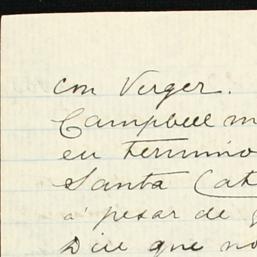 con Verger.
Campbell m
en termino
Santa Cat
a' pesar de g
Dice que no